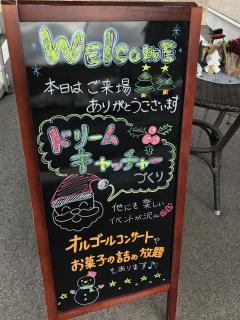 WELCOME
本日はご来場
ありがとうございます
ドリーム
キャッチャー
づくり
他にも楽しい
イベントが沢山
オルゴールコンサートや
お菓子の詰め放題
もあります♪